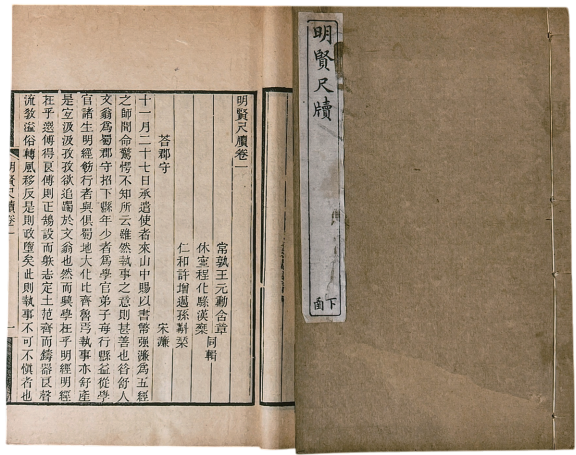 明賢尺牘
下函
明賢尺牘卷一
常孰王元勳含章
休寧程化騄漢桀
同輯
仁和許增邁孫斠栞
荅郡守 宋濂
十一月二十七日承遣使者來山中賜以書幣強濂爲五經
之師聞命驚愕不知所云雖然執事之意則甚善也昔舒人
文翁爲蜀郡守招下縣年少者爲學官弟子每行縣益從學
官諸生明經飭行者與俱蜀地大化比齊魯焉執事亦舒產
是宜汲汲孜孜欲追躅於文翁也然而興學在乎明經明經
在乎選傅得良傅則正鵠設而躲志定土范齊而鑄器良聲
流敎溢俗轉風移反是則政墮矣此則執事不可不愼者也
明賢尺牘卷一
一